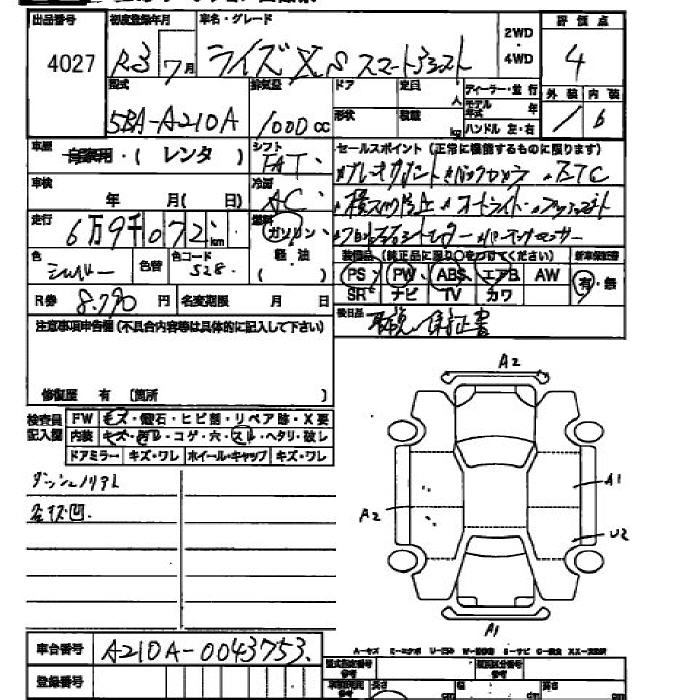 出品番号 初度登録年月 車名・グレード 評価点
4027 R3 7月 ライズ X S スマートアシスト 2WD・4WD 4
型式 排気量 ドア 定員 人 ディーラー・並行 外装 内装
形状 積載 kg モデル年式 年
5BA-A210A 1000cc ハンドル 左・右 / 6
車歴 自家用・(レンタ) シフト セールスポイント(正常に機能するものに限ります)
FAT バックカメラ ETC
車検 年 月( 日) 冷房
AC オートライト
走行 6万9千072km 燃料 ガソリン
コーナーセンサー
(軽・油)
色 シルバー 色替 色コード S28 装備品(純正品に限り○をつけてください) 新車保証書
PS PW ABS エアB AW 有・無
SR ナビ TV カワ
R券 8,790円 名変期限 月 日 後日品
取説/保証書
注意事項申告欄(不具合内容等は具体的に記入して下さい)
修復歴 有 〔箇所 〕
検査員記入欄 FW キズ・飛石・ヒビ割・リペア跡・X要
内装 キズ・汚レ・コゲ・穴・スレ・ヘタリ・破レ
ドアミラー キズ・ワレ ホイール・キャップ キズ・ワレ
A2
各キズ凹.
A1
A2
U2
A1
車台番号 A210A-0043753.
登録番号